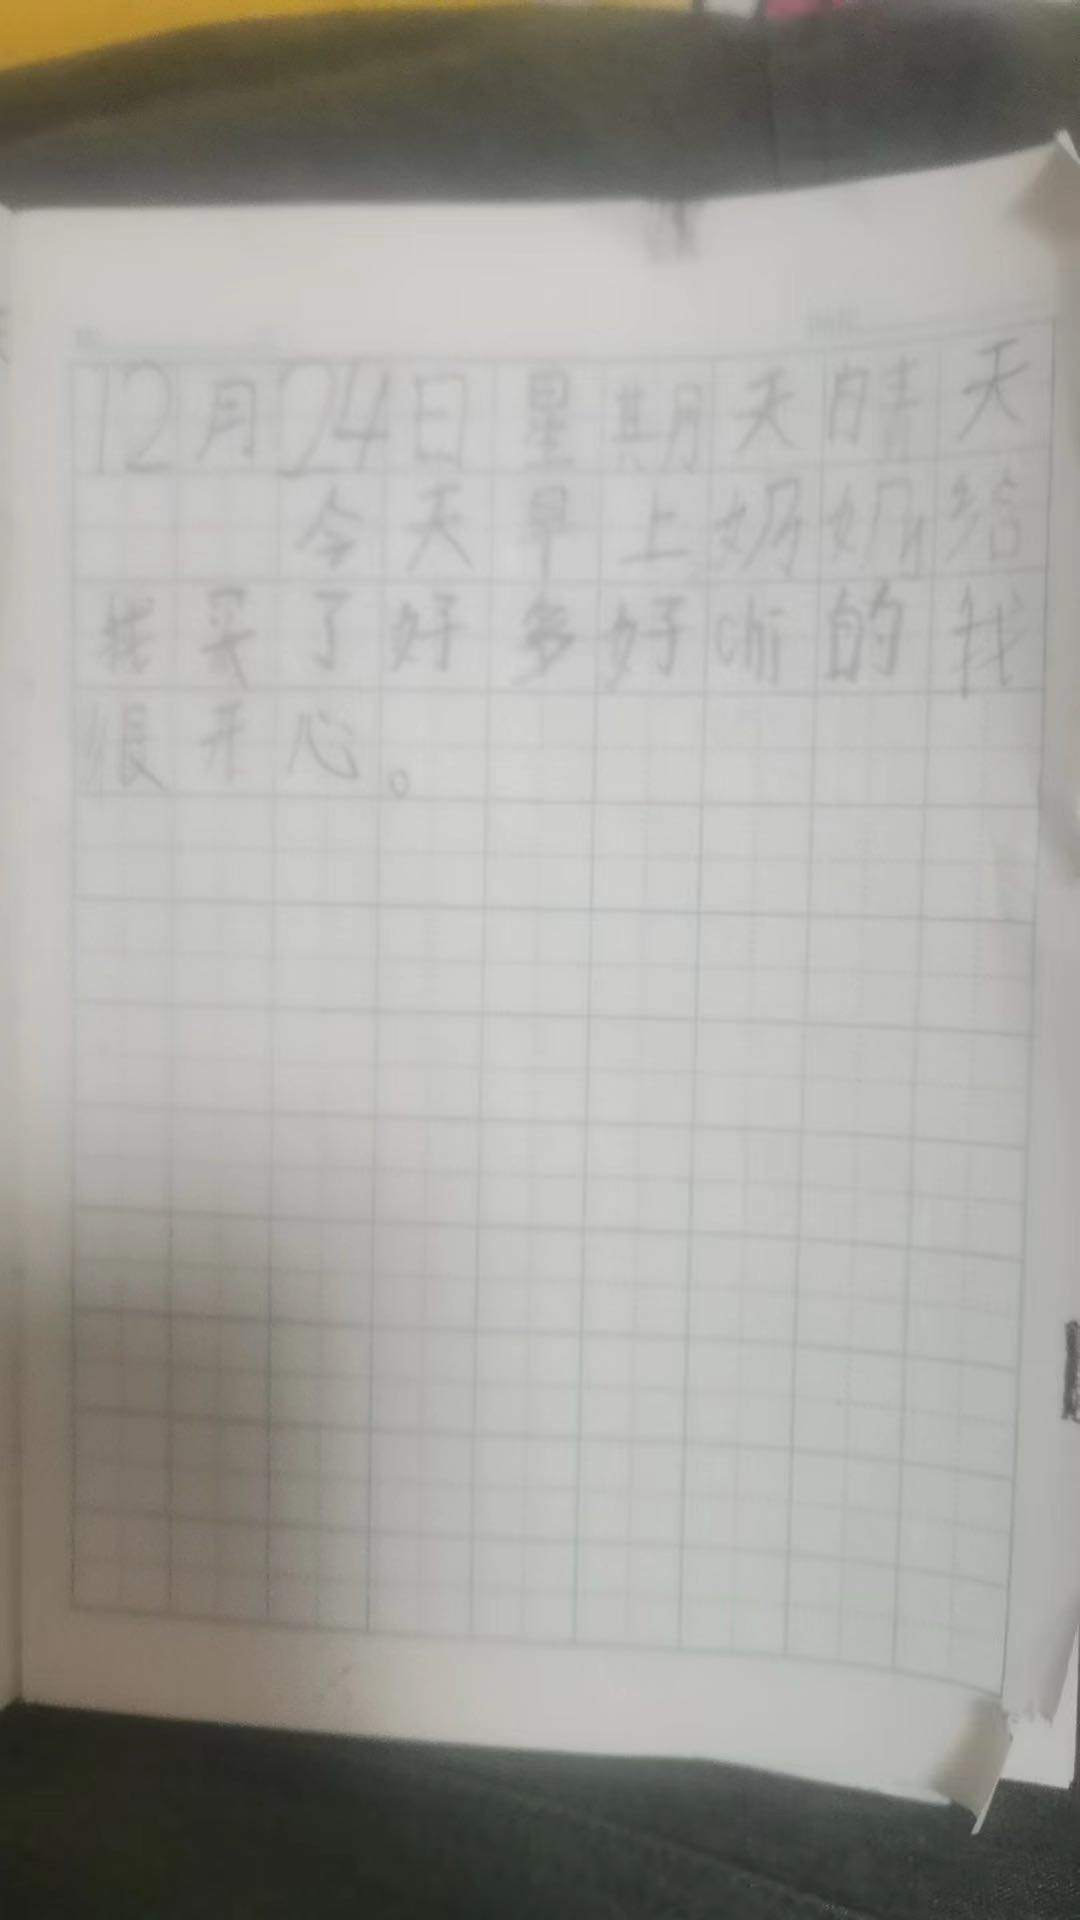 12月24日星期天晴天
今天早上奶奶给
我买了好多好chi的我
很开心。